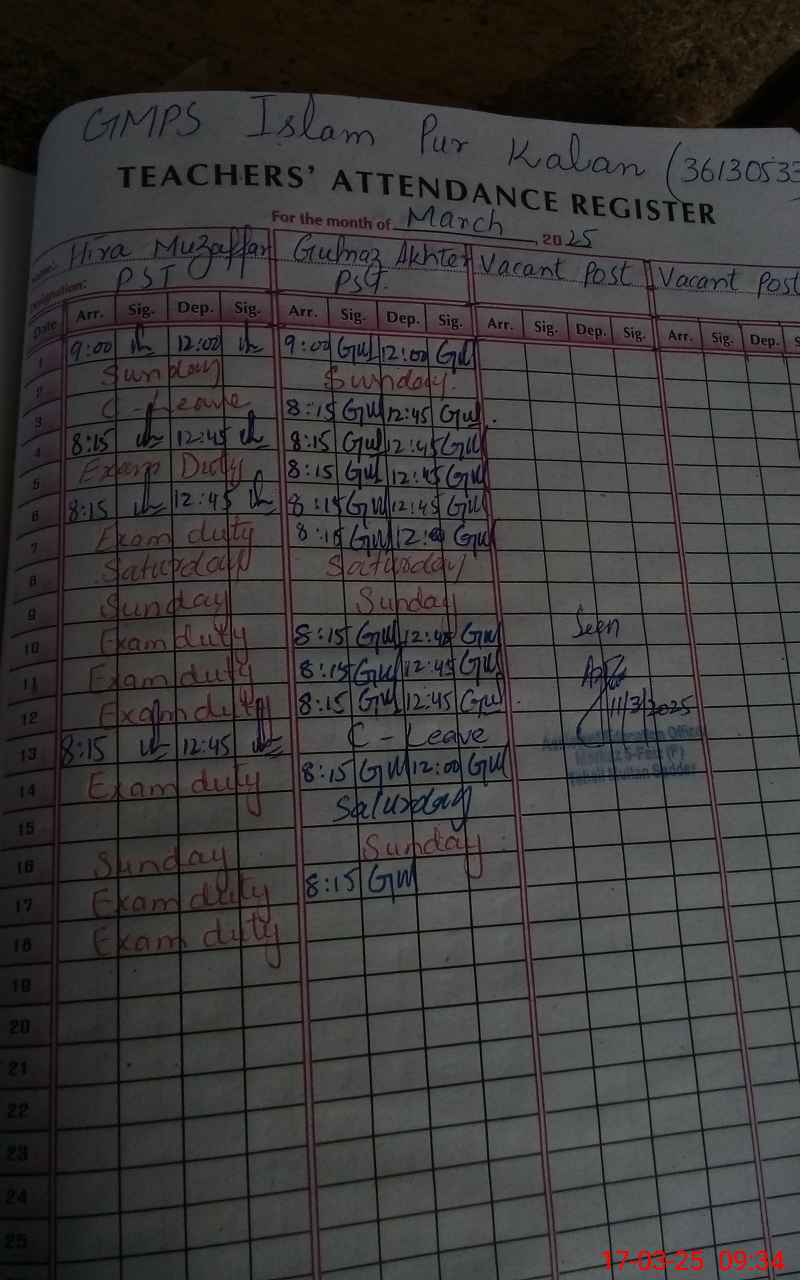 GMPS Islam Pur Kalan (36130533
TEACHERS' ATTENDANCE REGISTER
For the month of March 2025
Name: Hira Muzaffar Gulnaz Akhter Vacant Post Vacant Post
Designation: PST PST.
Date Arr. Sig. Dep. Sig. Arr. Sig. Dep. Sig. Arr. Sig. Dep. Sig. Arr. Sig. Dep. S
1 9:00 12:00 9:00 Gul 12:00 Gul
2 Sunday Sunday.
3 C-Leave 8:15 Gul 12:45 Gul.
4 8:15 12:45 8:15 Gul 12:45 Gul
5 Exam Duty 8:15 Gul 12:45 Gul
6 8:15 12:45 8:15 Gul 12:45 Gul
7 Exam duty 8:15 Gul 12:00 Gul
8 Saturday Saturday
9 Sunday Sunday
10 Exam duty 8:15 Gul 12:45 Gul Seen
11 Exam duty 8:15 Gul 12:45 Gul
12 Exam duty 8:15 Gul 12:45 Gul 11/3/2025
13 8:15 12:45 C-Leave
14 Exam duty 8:15 Gul 12:00 Gul
15 Saturday
16 Sunday Sunday
17 Exam duty 8:15 Gul
18 Exam duty
19
20
21
22
23
24
25
17-03-25 09:34